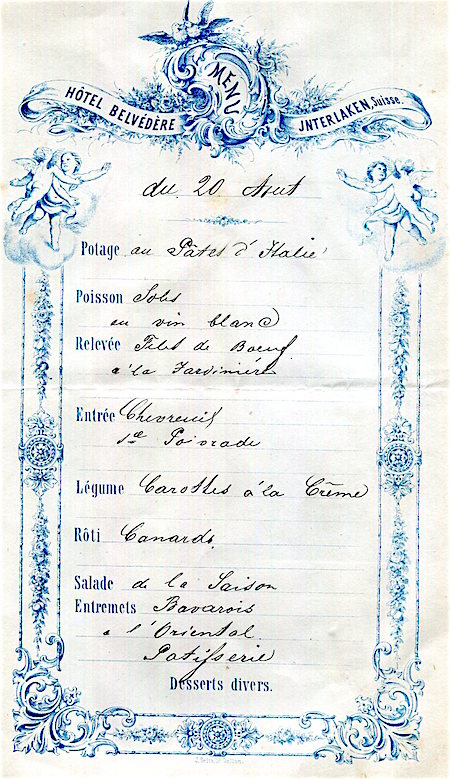 MENU
HÔTEL BELVÉDÈRE
JNTERLAKEN, Suisse.
du 20 Aout
Potage au Pâtes d'Italie
Poisson Sols
au vin blanc
Relevée Filet de Boeuf
à la Jardinière
Entrée Chevreuil
sce Poivrade
Légume Carottes à la Crême
Rôti Canards.
Salade de la Saison
Entremets Bavarois
a l'Oriental
Patisserie
Desserts divers.